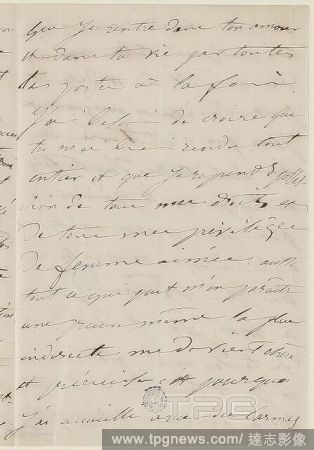 que je rentre dans ton amour
et dans ta vie par toutes
les portes à la fois.
J'ai besoin de croire que
tu me rendu tout
entier et que je reprend
de tous mes droits et
de tous mes privilèges
de femme aimée, aussi
tout ce qui peut m'en paraître
une preuve même la plus
indirecte, me devient chère
et précieuse et pourquoi
j'ai accueilli avec des larmes
TPG
www.tpgnews.com/達志影像